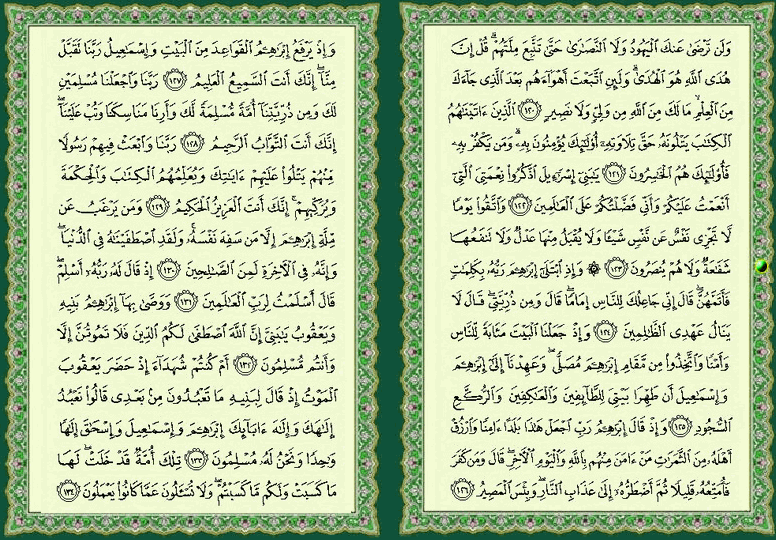 وَلَن تَرْضَىٰ عَنكَ ٱلْيَهُودُ وَلَا ٱلنَّصَـٰرَىٰ حَتَّىٰ تَتَّبِعَ مِلَّتَهُمْ ۗ قُلْ إِنَّ
هُدَى ٱللَّهِ هُوَ ٱلْهُدَىٰ ۗ وَلَئِنِ ٱتَّبَعْتَ أَهْوَآءَهُم بَعْدَ ٱلَّذِى جَآءَكَ
مِنَ ٱلْعِلْمِ ۙ مَا لَكَ مِنَ ٱللَّهِ مِن وَلِىٍّ وَلَا نَصِيرٍ ١٢٠ ٱلَّذِينَ ءَاتَيْنَـٰهُمُ
ٱلْكِتَـٰبَ يَتْلُونَهُۥ حَقَّ تِلَاوَتِهِۦٓ أُو۟لَـٰٓئِكَ يُؤْمِنُونَ بِهِۦ ۗ وَمَن يَكْفُرْ بِهِۦ
فَأُو۟لَـٰٓئِكَ هُمُ ٱلْخَـٰسِرُونَ ١٢١ يَـٰبَنِىٓ إِسْرَٰٓءِيلَ ٱذْكُرُوا۟ نِعْمَتِىَ ٱلَّتِىٓ
أَنْعَمْتُ عَلَيْكُمْ وَأَنِّى فَضَّلْتُكُمْ عَلَى ٱلْعَـٰلَمِينَ ١٢٢ وَٱتَّقُوا۟ يَوْمًا
لَّا تَجْزِى نَفْسٌ عَن نَّفْسٍ شَيْـًٔا وَلَا يُقْبَلُ مِنْهَا عَدْلٌ وَلَا تَنفَعُهَا
شَفَـٰعَةٌ وَلَا هُمْ يُنصَرُونَ ١٢٣ ۞ وَإِذِ ٱبْتَلَىٰٓ إِبْرَٰهِـۧمَ رَبُّهُۥ بِكَلِمَـٰتٍ
فَأَتَمَّهُنَّ ۖ قَالَ إِنِّى جَاعِلُكَ لِلنَّاسِ إِمَامًا ۖ قَالَ وَمِن ذُرِّيَّتِى ۖ قَالَ لَا
يَنَالُ عَهْدِى ٱلظَّـٰلِمِينَ ١٢٤ وَإِذْ جَعَلْنَا ٱلْبَيْتَ مَثَابَةً لِّلنَّاسِ
وَأَمْنًا وَٱتَّخِذُوا۟ مِن مَّقَامِ إِبْرَٰهِـۧمَ مُصَلًّى ۖ وَعَهِدْنَآ إِلَىٰٓ إِبْرَٰهِـۧمَ
وَإِسْمَـٰعِيلَ أَن طَهِّرَا بَيْتِىَ لِلطَّآئِفِينَ وَٱلْعَـٰكِفِينَ وَٱلرُّكَّعِ
ٱلسُّجُودِ ١٢٥ وَإِذْ قَالَ إِبْرَٰهِـۧمُ رَبِّ ٱجْعَلْ هَـٰذَا بَلَدًا ءَامِنًا وَٱرْزُقْ
أَهْلَهُۥ مِنَ ٱلثَّمَرَٰتِ مَنْ ءَامَنَ مِنْهُم بِٱللَّهِ وَٱلْيَوْمِ ٱلْـَٔاخِرِ ۖ قَالَ وَمَن كَفَرَ
فَأُمَتِّعُهُۥ قَلِيلًا ثُمَّ أَضْطَرُّهُۥٓ إِلَىٰ عَذَابِ ٱلنَّارِ ۖ وَبِئْسَ ٱلْمَصِيرُ ١٢٦
وَإِذْ يَرْفَعُ إِبْرَٰهِـۧمُ ٱلْقَوَاعِدَ مِنَ ٱلْبَيْتِ وَإِسْمَـٰعِيلُ رَبَّنَا تَقَبَّلْ
مِنَّآ ۖ إِنَّكَ أَنتَ ٱلسَّمِيعُ ٱلْعَلِيمُ ١٢٧ رَبَّنَا وَٱجْعَلْنَا مُسْلِمَيْنِ
لَكَ وَمِن ذُرِّيَّتِنَآ أُمَّةً مُّسْلِمَةً لَّكَ وَأَرِنَا مَنَاسِكَنَا وَتُبْ عَلَيْنَآ ۖ
إِنَّكَ أَنتَ ٱلتَّوَّابُ ٱلرَّحِيمُ ١٢٨ رَبَّنَا وَٱبْعَثْ فِيهِمْ رَسُولًا
مِّنْهُمْ يَتْلُوا۟ عَلَيْهِمْ ءَايَـٰتِكَ وَيُعَلِّمُهُمُ ٱلْكِتَـٰبَ وَٱلْحِكْمَةَ
وَيُزَكِّيهِمْ ۚ إِنَّكَ أَنتَ ٱلْعَزِيزُ ٱلْحَكِيمُ ١٢٩ وَمَن يَرْغَبُ عَن
مِّلَّةِ إِبْرَٰهِـۧمَ إِلَّا مَن سَفِهَ نَفْسَهُۥ ۚ وَلَقَدِ ٱصْطَفَيْنَـٰهُ فِى ٱلدُّنْيَا ۖ
وَإِنَّهُۥ فِى ٱلْـَٔاخِرَةِ لَمِنَ ٱلصَّـٰلِحِينَ ١٣٠ إِذْ قَالَ لَهُۥ رَبُّهُۥٓ أَسْلِمْ ۖ
قَالَ أَسْلَمْتُ لِرَبِّ ٱلْعَـٰلَمِينَ ١٣١ وَوَصَّىٰ بِهَآ إِبْرَٰهِـۧمُ بَنِيهِ
وَيَعْقُوبُ يَـٰبَنِىَّ إِنَّ ٱللَّهَ ٱصْطَفَىٰ لَكُمُ ٱلدِّينَ فَلَا تَمُوتُنَّ إِلَّا
وَأَنتُم مُّسْلِمُونَ ١٣٢ أَمْ كُنتُمْ شُهَدَآءَ إِذْ حَضَرَ يَعْقُوبَ
ٱلْمَوْتُ إِذْ قَالَ لِبَنِيهِ مَا تَعْبُدُونَ مِنۢ بَعْدِى قَالُوا۟ نَعْبُدُ
إِلَـٰهَكَ وَإِلَـٰهَ ءَابَآئِكَ إِبْرَٰهِـۧمَ وَإِسْمَـٰعِيلَ وَإِسْحَـٰقَ إِلَـٰهًا
وَٰحِدًا وَنَحْنُ لَهُۥ مُسْلِمُونَ ١٣٣ تِلْكَ أُمَّةٌ قَدْ خَلَتْ ۖ لَهَا
مَا كَسَبَتْ وَلَكُم مَّا كَسَبْتُمْ ۖ وَلَا تُسْـَٔلُونَ عَمَّا كَانُوا۟ يَعْمَلُونَ ١٣٤